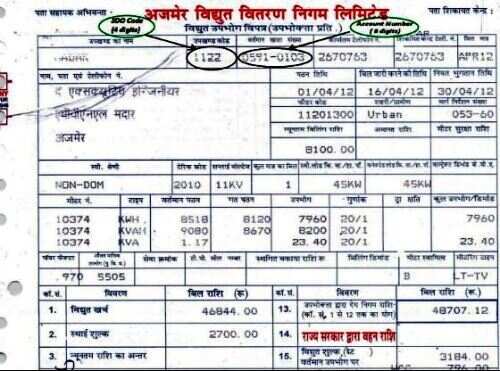 पता सहायक अभियन्ता -
SDO Code
(4 digits)
अजमेर विद्युत वितरण निगम लिमिटेड
Account Number
(8 digits)
पता शिकायत केन्द्र :
विद्युत उपभोग विपत्र (उपभोक्ता प्रति)
उपखण्ड का नाम
उपखण्ड कोड
वर्तमान खाता संख्या
1122
0591-0103
2670763
2670763
APR12
नाम, पता एवं टेलीफोन नं.
पठन तिथि
बिल जारी करने की तिथि
नियत भुगतान तिथि
द एक्सक्यूटिव इन्जिनीयर
01/04/12
16/04/12
30/04/12
फीडर कोड
शहरी/ग्रामीण
मदार
11201300
Urban
053-60
अजमेर
न्यूनतम बिलिंग राशि
अमानत राशि
मीटर सुरक्षा राशि
8100.00
टैरिफ कोड
सप्लाई वोल्टेज
NON-DOM
2010
11KV
1
45KW
45KW
मीटर नं.
टाइप
वर्तमान पठन
गत पठन
उपभोग
गुणांक
10374 KWH 8518 8120 7960 20/1 7960
10374 KVAH 9080 8670 8200 20/1
10374 KVA 1.17 23.40 20/1 23.40
पॉवर फैक्टर
बिलिंग डिमांड
.970
5505
B
LT-TV
कॉ.सं.
विवरण
बिल राशि (रू.)
कॉ.सं.
विवरण
बिल राशि (रू.)
1. विद्युत खर्च
46844.00
13. उपभोक्ता द्वारा देय निगम राशि-
(कॉ. सं. 1 से 12 तक का योग)
48707.12
2. स्थाई शुल्क
2700.00
14. राज्य सरकार द्वारा वहन राशि
3. न्यूनतम राशि का अन्तर
15. विद्युत शुल्क
वर्तमान उपभोग पर
3184.00